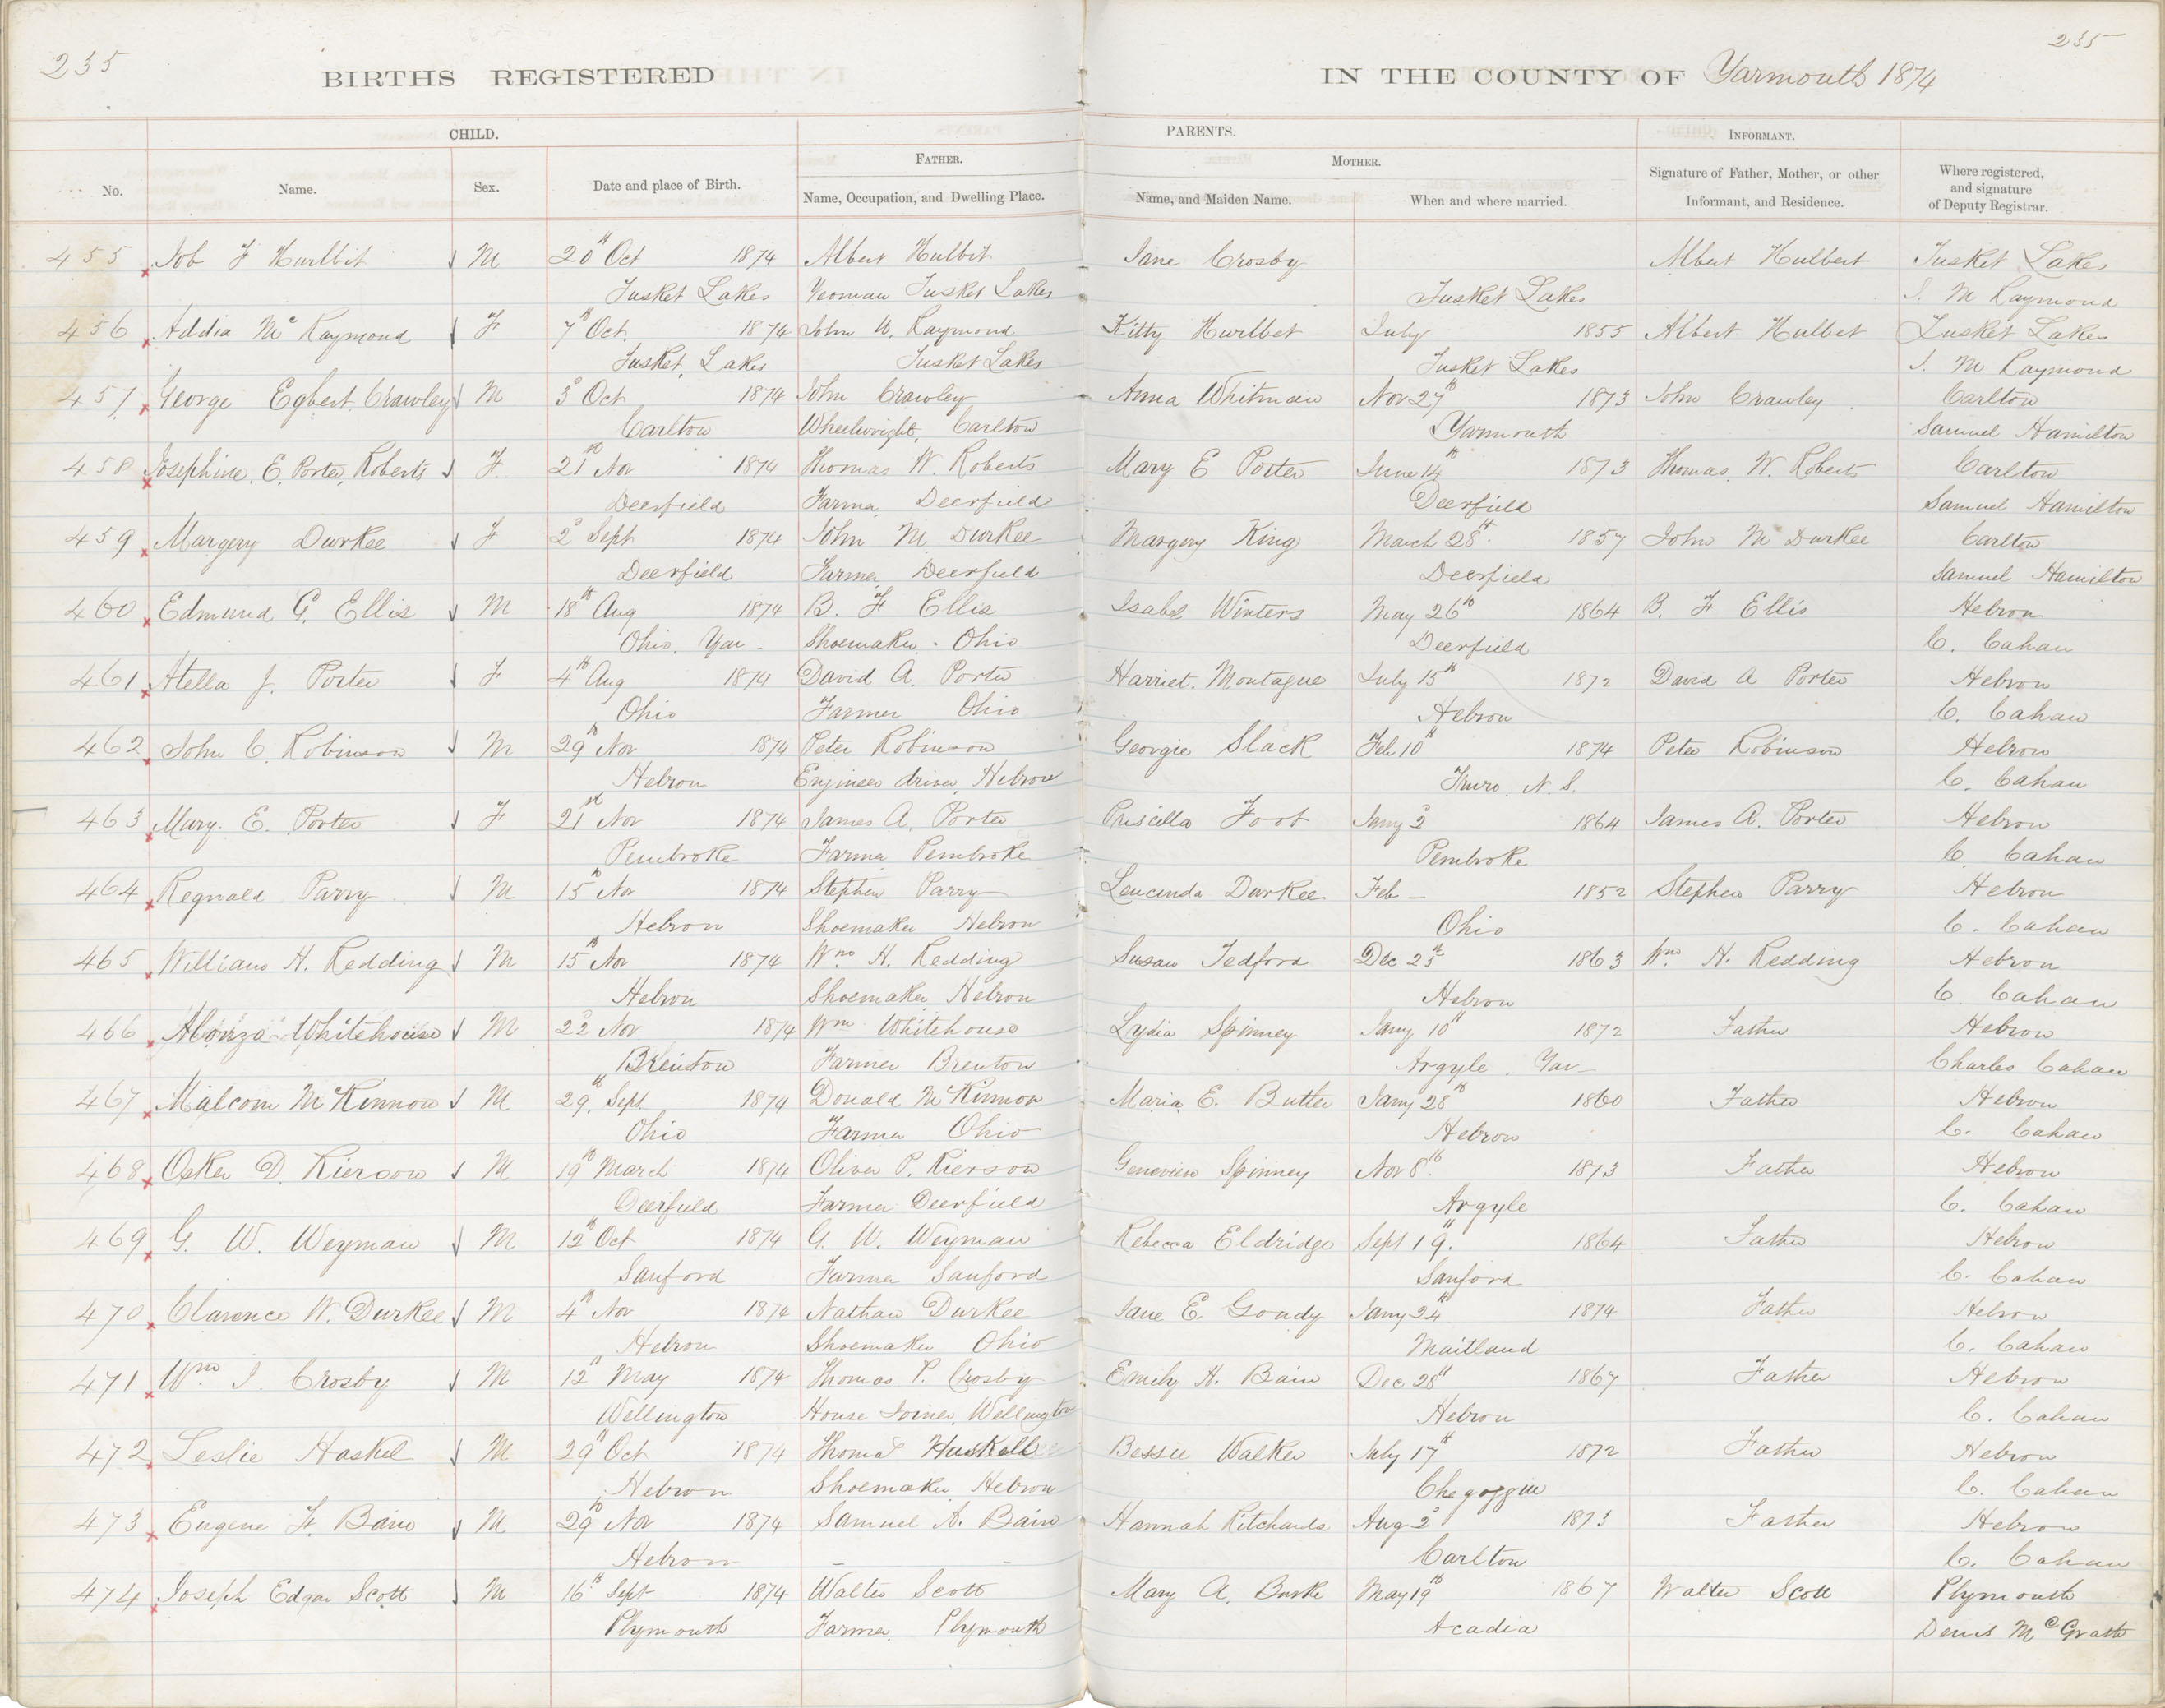 235
235
BIRTHS REGISTERED
IN THE COUNTY OF Yarmouth 1874
CHILD.
PARENTS.
INFORMANT.
FATHER.
MOTHER.
No. Name. Sex. Date and place of Birth. Name, Occupation, and Dwelling Place. Name, and Maiden Name. When and where married. Signature of Father, Mother, or other Informant, and Residence. Where registered, and signature of Deputy Registrar.
455 Job F Hurlbit M 20th Oct 1874 Albert Hulbit Jane Crosby Albert Hulbert Tusket Lakes
Tusket Lakes Yeoman Tusket Lakes Tusket Lakes J. M Raymond
456 Addia Mc Raymond F 7th Oct. 1874 John W. Raymond Kitty Hurlbet July 1855 Albert Hulbet Tusket Lakes
Tusket Lakes Tusket Lakes Tusket Lakes J. M Raymond
457 George Egbert Crawley M 3d Oct 1874 John Crawley Anna Whitman Nov 27th 1873 John Crawley Carlton
Carlton Wheelwright, Carlton Yarmouth Samuel Hamilton
458 Josephine E. Porter Roberts F 21st Nov 1874 Thomas W. Roberts Mary E Porter June 14th 1873 Thomas W. Roberts Carlton
Deerfield Farmer Deerfield Deerfield Samuel Hamilton
459 Margery Durkee F 2d Sept 1874 John M Durkee Margery King March 28th 1857 John M Durkee Carlton
Deerfield Farmer Deerfield Deerfield Samuel Hamilton
460 Edmund G. Ellis M 18th Aug 1874 B. F Ellis Isabel Winters May 26th 1864 B. F Ellis Hebron
Ohio, Yar - Shoemaker - Ohio Deerfield C. Cahan
461 Atella J. Porter F 4th Aug 1874 David A. Porter Harriet Montague July 15th 1872 David A Porter Hebron
Ohio Farmer Ohio Hebron C. Cahan
462 John C. Robinson M 29th Nov 1874 Peter Robinson Georgie Slack Feb 10th 1874 Peter Robinson Hebron
Hebron Engineer driver, Hebron Truro, N. S. C. Cahan
463 Mary E. Porter F 21st Nov 1874 James A. Porter Priscilla Foot Jany 2d 1864 James A. Porter Hebron
Pembroke Farmer Pembroke Pembroke C. Cahan
464 Regnald Parry M 15th Nov 1874 Stephen Parry Leucinda Durkee Feb - 1852 Stephen Parry Hebron
Hebron Shoemaker Hebron Ohio C. Cahan
465 William H. Redding M 15th Nov 1874 Wm H. Redding Susan Tedford Dec 25th 1863 Wm H. Redding Hebron
Hebron Shoemaker Hebron Hebron C. Cahan
466 Alonza Whitehouse M 22d Nov 1874 Wm Whitehouse Lydia Spinney Jany 10th 1872 Father Hebron
Brenton Farmer Brenton Argyle, Yar - Charles Cahan
467 Malcom McKinnon M 29th Sept 1874 Donald McKinnon Maria E. Butler Jany 28th 1860 Father Hebron
Ohio Farmer Ohio Hebron C. Cahan
468 Osker D. Rierson M 19th March 1874 Oliver P. Rierson Genevieve Spinney Nov 8th 1873 Father Hebron
Deerfield Farmer Deerfield Argyle C. Cahan
469 G. W. Weyman M 12th Oct 1874 G. W. Weyman Rebecca Eldridge Sept 19th 1864 Father Hebron
Sanford Farmer Sanford Sanford C. Cahan
470 Clarence W. Durkee M 4th Nov 1874 Nathan Durkee Jane E. Goudy Jany 24th 1874 Father Hebron
Hebron Shoemaker Ohio Maitland C. Cahan
471 Wm I. Crosby M 12th May 1874 Thomas P. Crosby Emily H. Bain Dec 28th 1867 Father Hebron
Wellington House Joiner, Wellington Hebron C. Cahan
472 Leslie Haskel M 29th Oct 1874 Thomas Huskell Bessie Walker July 17th 1872 Father Hebron
Hebron Shoemaker Hebron Chegoggin C. Cahan
473 Eugene F. Bain M 29th Nov 1874 Samuel A. Bain Hannah Ritchards Aug 2d 1873 Father Hebron
Hebron - - Carlton C. Cahan
474 Joseph Edgar Scott M 16th Sept 1874 Walter Scott Mary A. Burke May 19th 1867 Walter Scott Plymouth
Plymouth Farmer Plymouth Acadia Denis McGrath